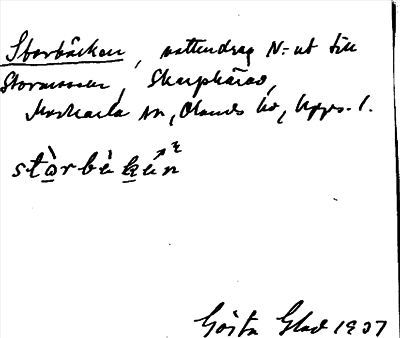 Storbäcken, vattendrag N-ut till
Stormossen, Skarphärad,
Morkarla sn, Olands hd, Upps. l.
stòrbèkén
Gösta Glad 1937